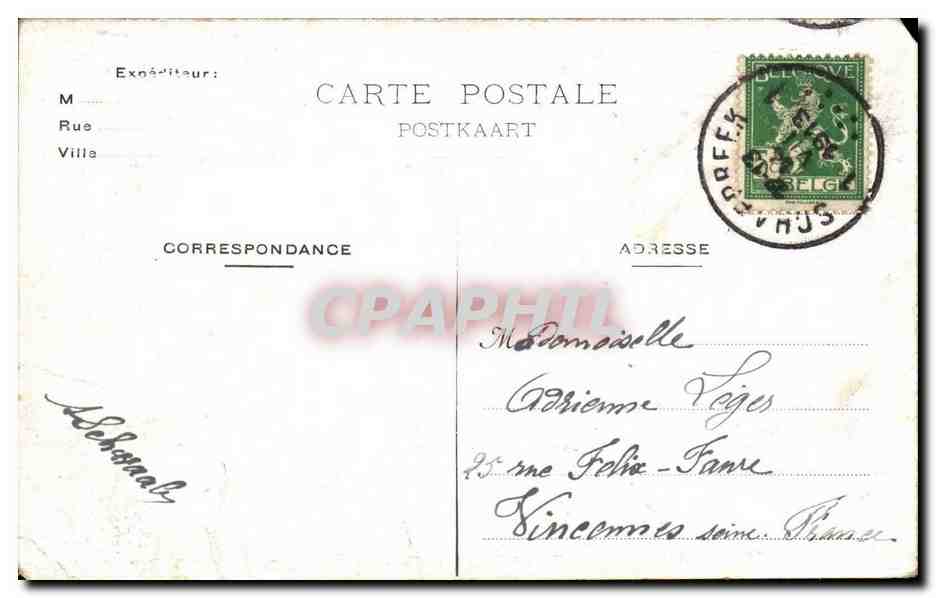 Expéditeur:
M
Rue
Ville
CARTE POSTALE
POSTKAART
BELGIQUE
BELGIË
SCHAERBEEK
1913
CORRESPONDANCE
ADRESSE
CPAPHIL
Mademoiselle
Adrienne Léger
25 rue Félix-Faure
Vincennes seine. France
ASchwaab